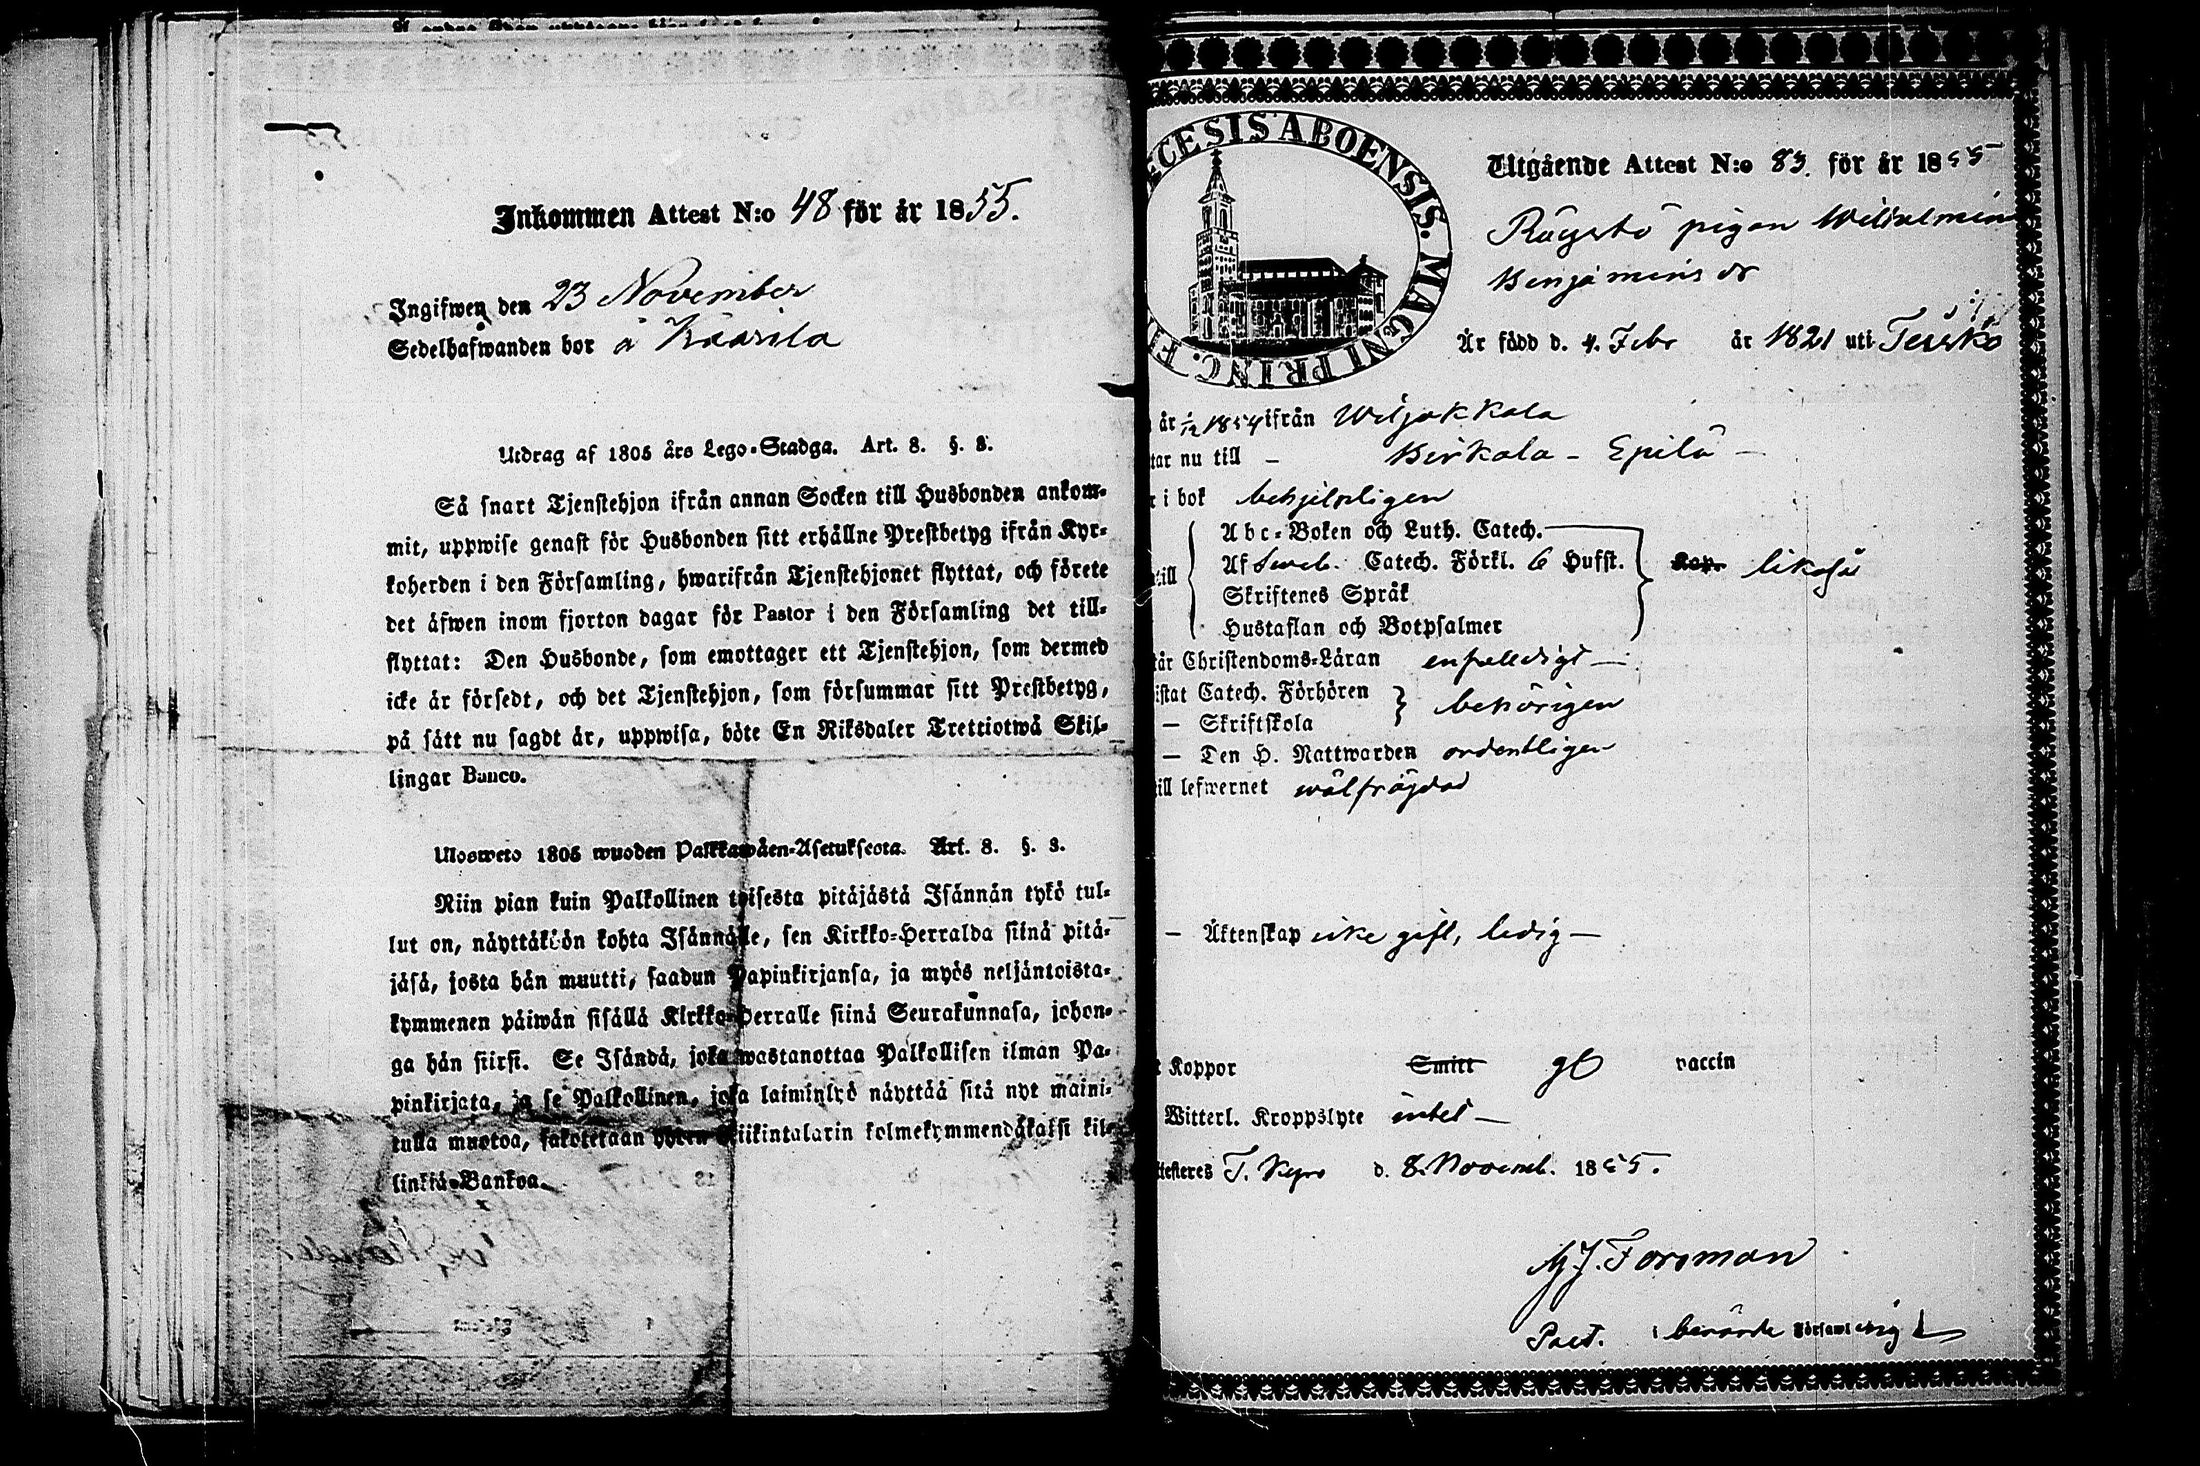 Inkommen Attest N:o 48 för år 1855.
Ingifwen den 23 November
Sedelhafwanden bor å Kaarila
Utdrag af 1805 års Lego-Stadga. Art. 8. §. 3.
Så snart Tjenstehjon ifrån annan Socken till Husbonden ankom-
mit, uppwise genast för Husbonden sitt erhållne Prestbetyg ifrån Kyr-
koherden i den Församling, hwarifrån Tjenstehjonet flyttat, och förete
det äfwen inom fjorton dagar för Pastor i den Församling det till-
flyttat: Den Husbonde, som emottager ett Tjenstehjon, som dermed
icke är försedt, och det Tjenstehjon, som försummar sitt Prestbetyg,
på sätt nu sagdt är, uppwisa, böte En Riksdaler Trettiotwå Skil-
lingar Banco.
Ulosweto 1805 wuoden Palkkawäen-Asetuksesta. Art. 8. §. 3.
Niin pian kuin Palkollinen toisesta pitäjästä Isännän tykö tul-
lut on, näyttäköön kohta Isännälle, sen Kirkko-Herralda siinä pitä-
jäsä, josta hän muutti, saadun Papinkirjansa, ja myös neljäntoista-
kymmenen päiwän sisällä Kirkko-Herralle siinä Seurakunnasa, johon-
ga hän siirsi. Se Isändä, joka wastanottaa Palkollisen ilman Pa-
pinkirjata, ja se Palkollinen, joka laiminlyö näyttää sitä nyt maini-
tulla muotoa, sakotetaan yhden Riikintalarin kolmekymmendäkaksi kil-
linkiä Bankoa.
DIŒCESIS ABOENSIS. MAGNI PRINC. F
Utgående Attest N:o 83. för år 1855
Röystö pigan Wilhelmin
Benjaminsdr
Är född d. 4. Febr år 1821 uti Teisko
år 1/12 1854 ifrån Wiljakkala
tar nu till – Birkala – Epilä –
r i bok behjelpligen
Abc-Boken och Luth. Catech.
till Af Sweb. Catech. Förkl. 6 Hufst. Kap. likaså
Skriftenes Språk
Hustaflan och Botpsalmer
tår Christendoms-Läran enfaldigt –
istat Catech. Förhören behörigen
– Skriftskola
– Den H. Nattwarden ordentligen
till lefwernet wälfrägdad
– Äktenskap icke gift, ledig –
t Koppor Smitt gd vaccin
Witterl. Kroppslyte intet –
ttesteres T. Kyro d. 8. Novemb. 1855.
M J. Forsman
Past. i berörde Församling